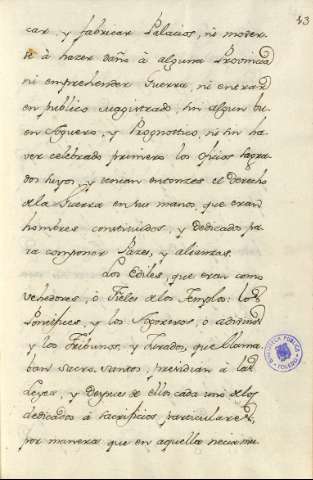 43
car, y fabricar Palacios, ni mover-
se à hazer daño à alguna Provincia
ni emprehender Guerra, ni entrar
en publico Magistrado, sin algun bu-
en Aguero, y Prognostico, ni sin ha-
ver celebrado primero los oficios sagra-
dos suyos, y tenian entonces el Derecho
de la Guerra en sus manos, que eran
hombres constituidos, y Dedicado pa-
ra componer Pazes, y alianzas.
Los Ediles, que eran como
vehedores, ò Fieles de los Templos: los
Pontifices, y los Agoreros, ò adivinos
y los Tribunos, y Jurados, que llama-
ban sacro-santos, presidian à las
Leyes, y Despues de ellos cada uno de los
dedicados à sacrificios particulares,
por manera que en aquella
BIBLIOTECA PÚBLICA
TOLEDO